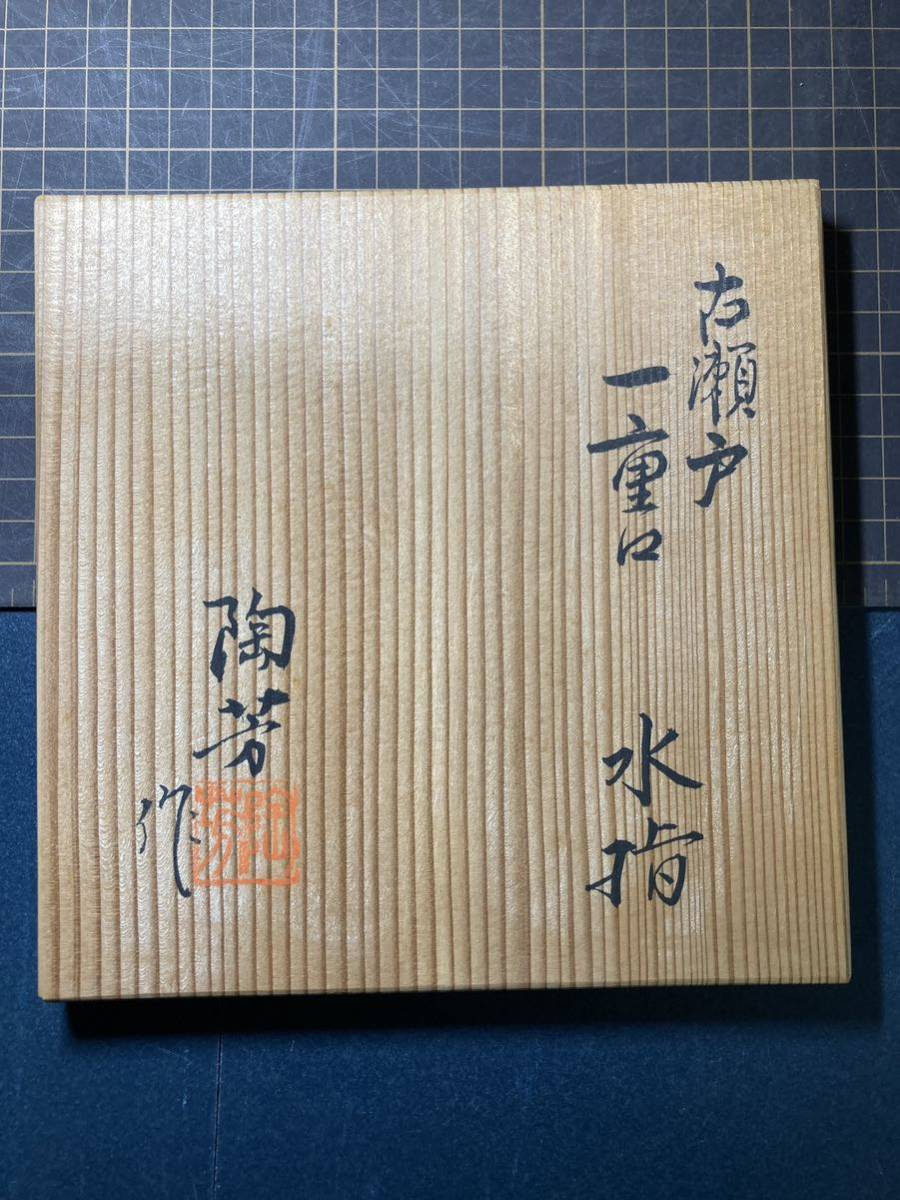 古瀬戸
一重口
水指
陶芳
作
陶芳